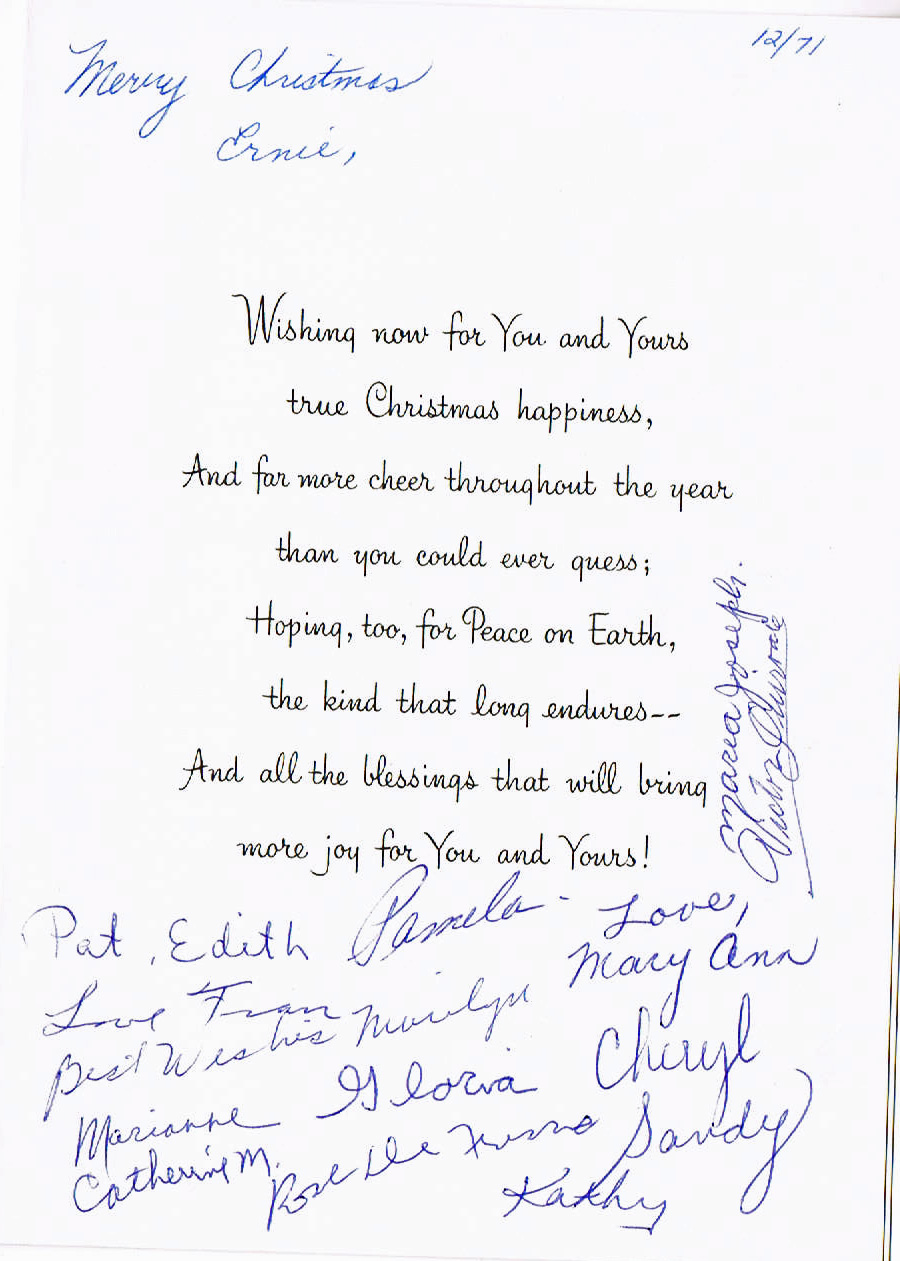 12/71
Merry Christmas
Ernie,
Wishing now for You and Yours
true Christmas happiness,
And far more cheer throughout the year
than you could ever guess;
Hoping, too, for Peace on Earth,
the kind that long endures--
And all the blessings that will bring
more joy for You and Yours!
Maria Joseph.
Victor
Pat, Edith Pamela - Love,
Mary Ann
Love Fran
Best Wishes Marilyn
Marianne Gloria Cheryl
Catherine M. Rose De Sandy
Kathy